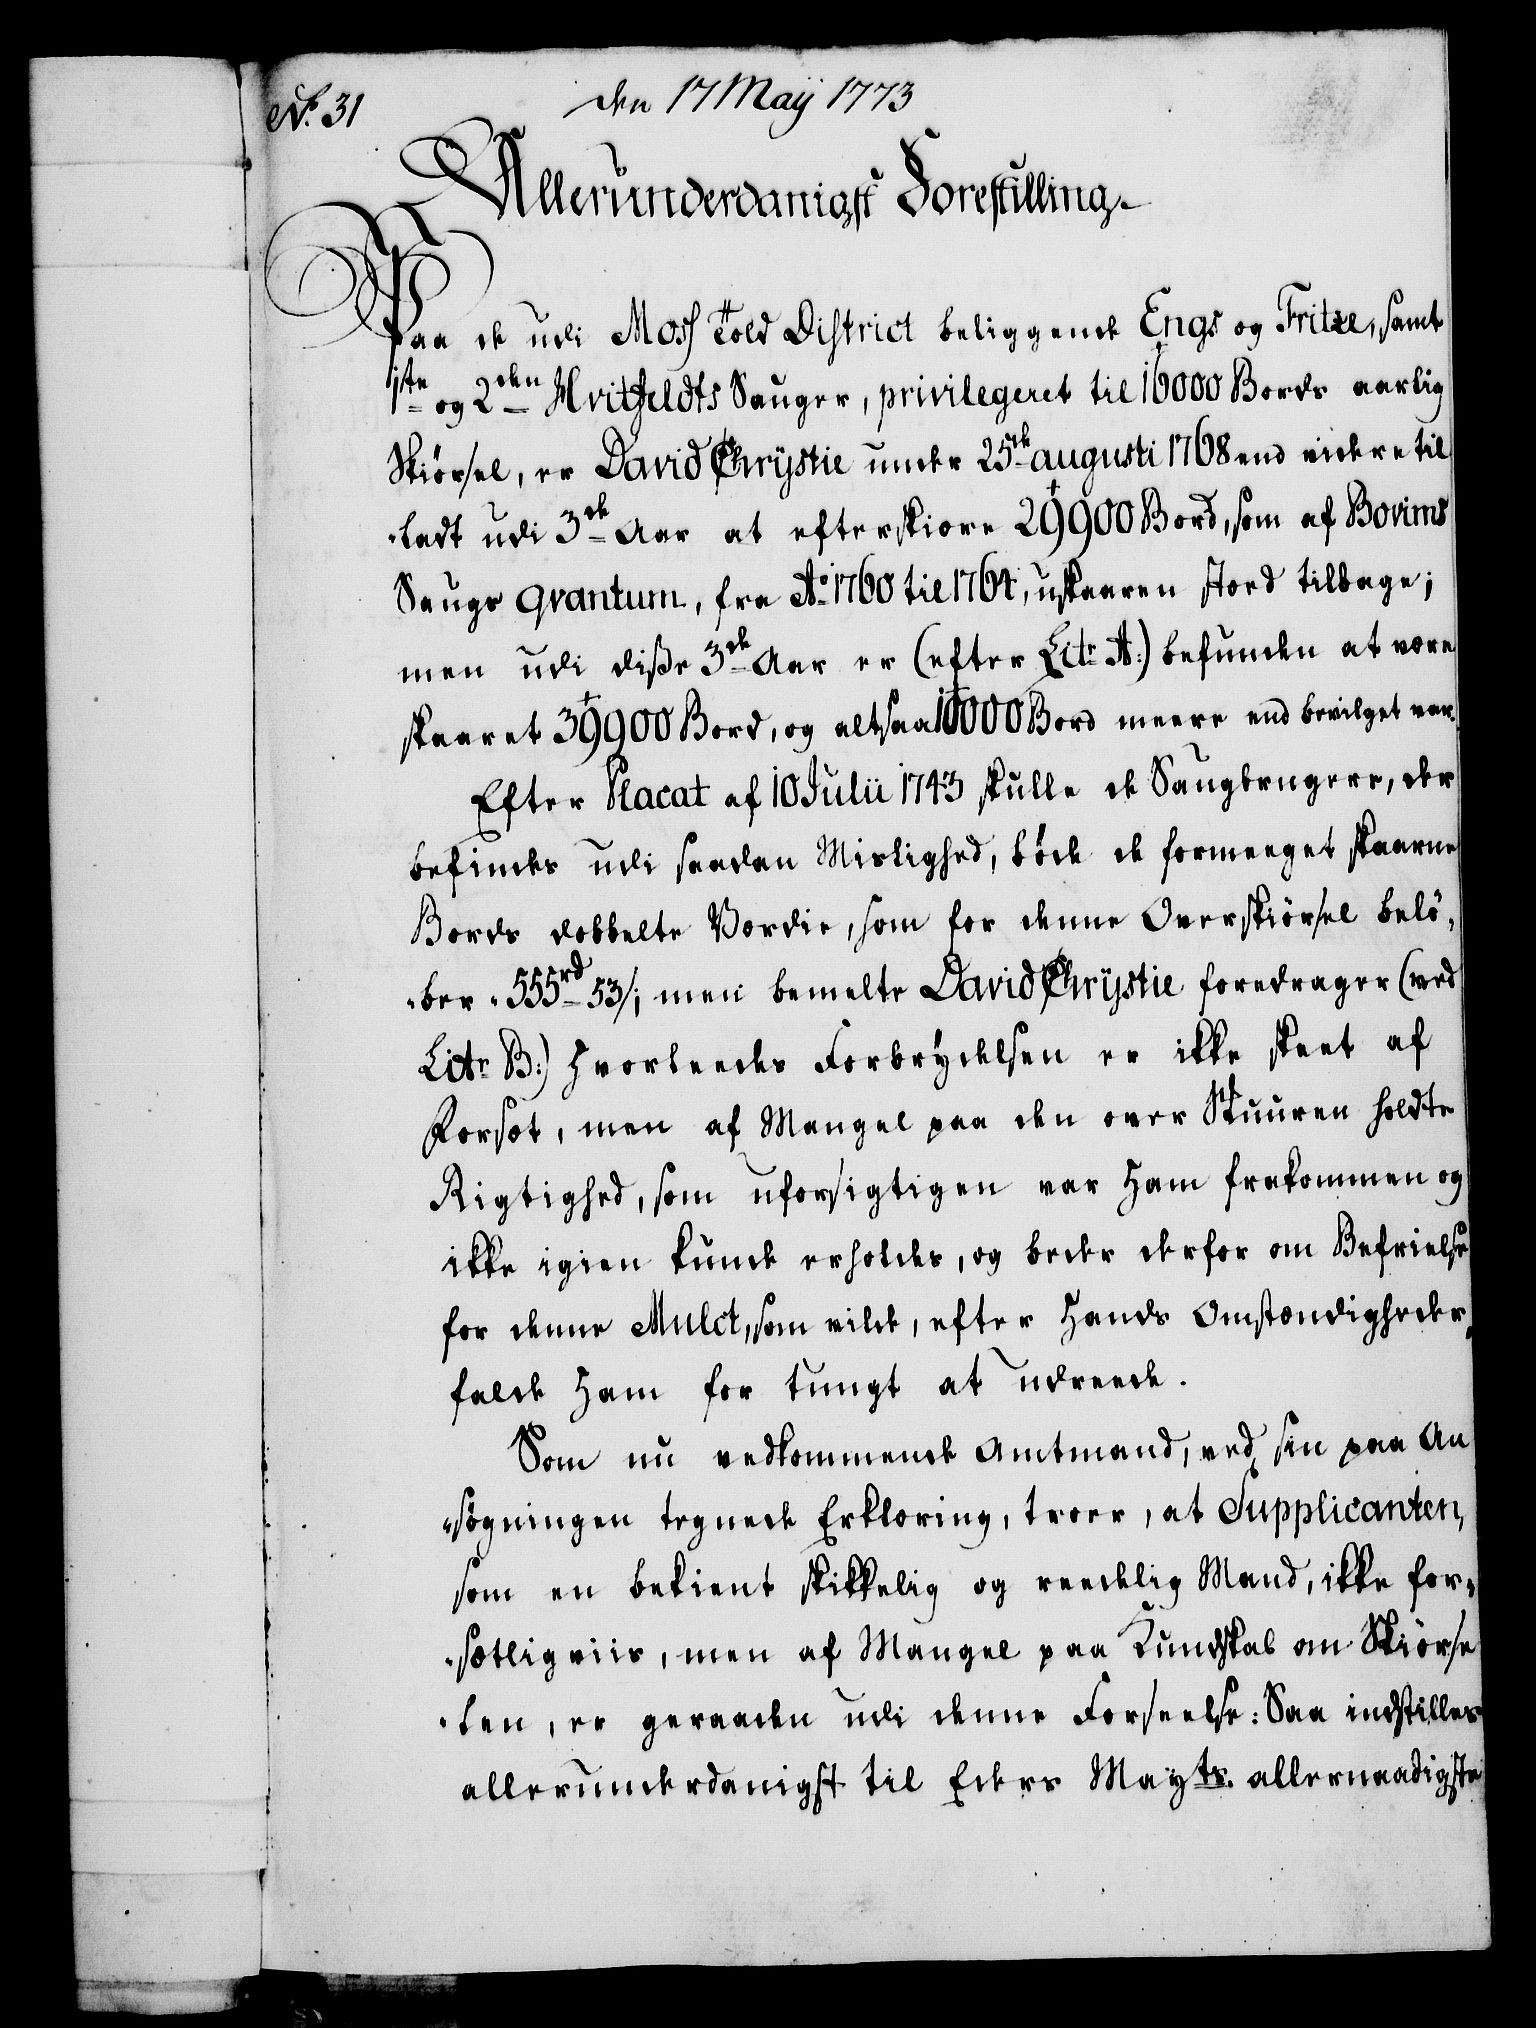 No. 31
den 17 Maÿ 1773
Allerunderdanigst Forestilling.
Paa de udi Moss Told District beliggende Engs og Fritze, samt
1ste og 2den Hvitfeldts Sauger, privilegeret til 16000 Bords aarlig
Skiørsel, er David Chrÿstie under 25de augusti 1768 end videre til
„ladt udi 3de Aar at efterskiære 29900 Bord, som af Bovims
Saugs qvantum, fra Ao. 1760 til 1764, uskaaren stod tilbage;
men udi disse 3de Aar er (efter Litr. A:) befunden at være
skaaret 39900 Bord, og altsaa 10000 Bord meere end bevilget var.
Efter Placat af 10 Julii 1743 skulle de Saugbrugere, der
befindes udi saadan Mislighed, bøde de formeeget skaarne
Bords dobbelte Værdie, som for denne Overskiørsel belø,
„ber „555rd 53/; men bemelte David Chrÿstie foredrager (ved
Litr. B:) hvorleedes Forbrÿdelsen er ikke skeet af
Forsæt, men af Mangel paa den over Skuuren holdte
Rigtighed, som uforsigtigen var Ham frakommen og
ikke igien kunde erholdes, og beder derfor om Befrielse
for denne Mulct, som vilde, efter Hands Omstændigheder,
falde Ham for tungt at udreede.
Som nu vedkommende Amtmand, ved sin paa An
„søgningen tegnede Erklæring, troer, at Supplicanten,
som en bekient skikkelig og reedelig Mand, ikke for„
„sætligviis, men af Mangel paa Kundskab om Skiørse
„len, er geraaden udi denne Forseelse: Saa indstilles
allerunderdanigst til Eders Mayts. allernaadigste